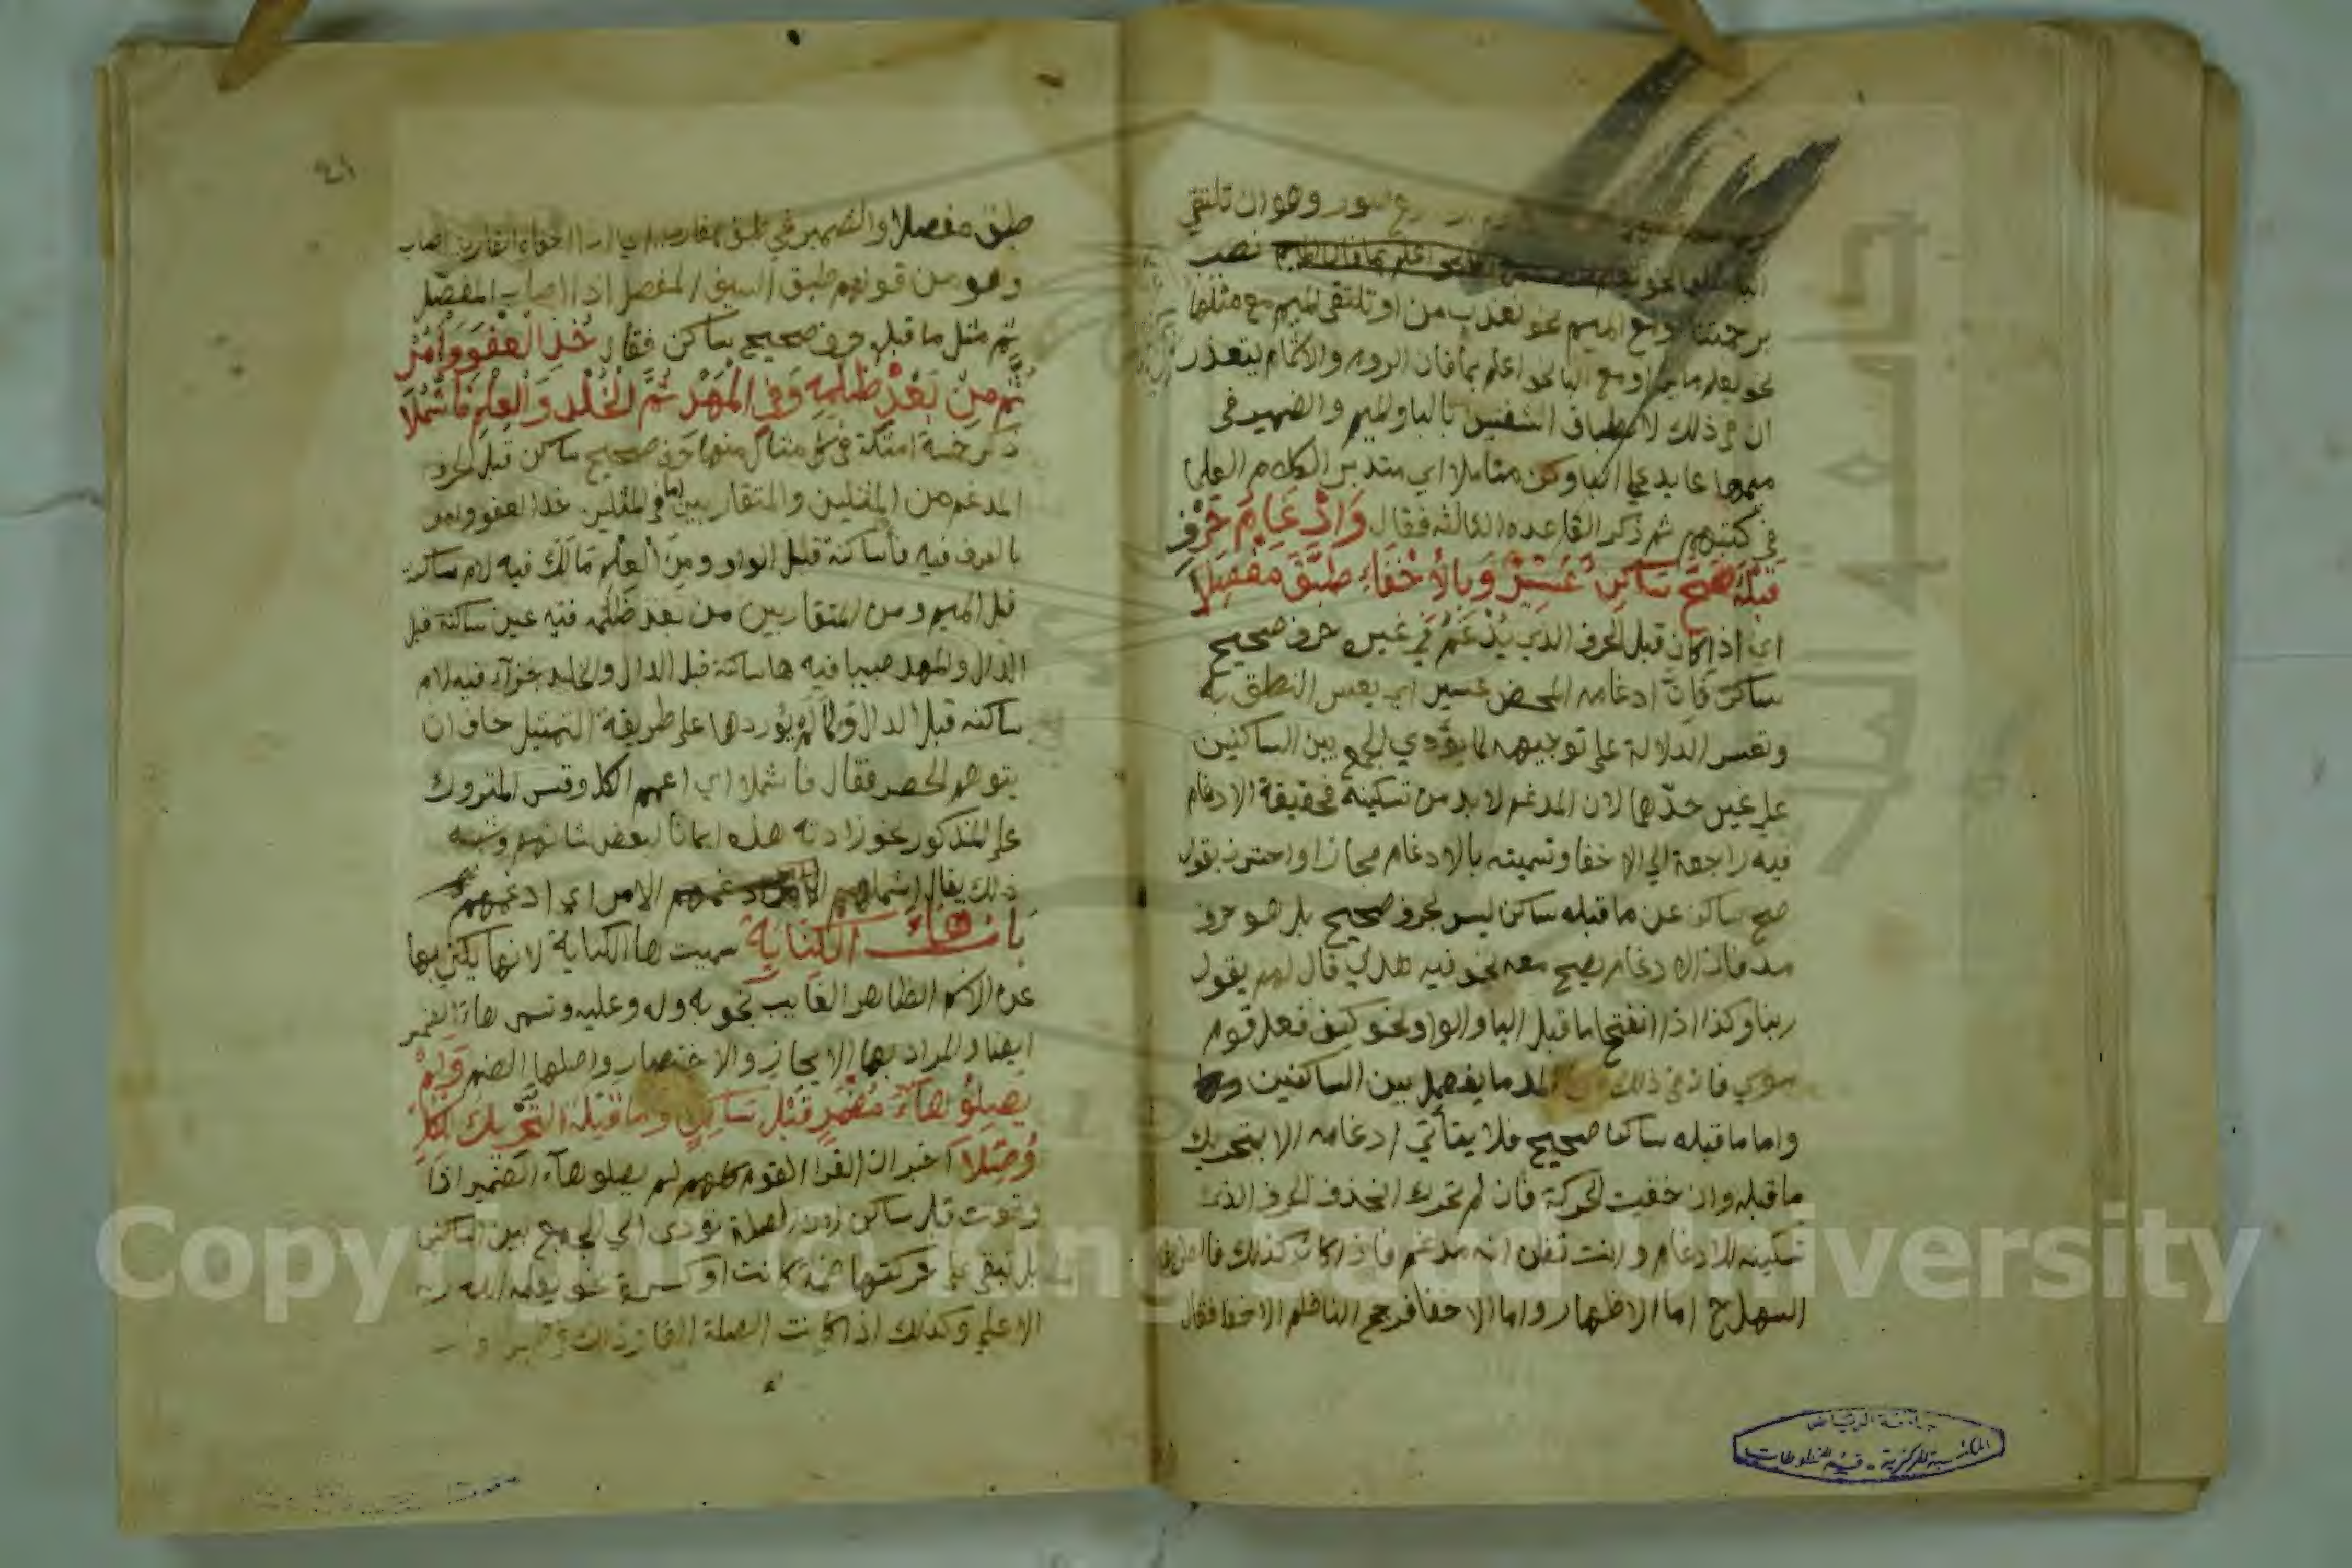 وهو ان تلتقي
اعلم بما قال نصب
برحمتنا ومع الميم نحو نعذب من او تلتقي الميم مع مثلها
نحو يعلم ما او مع البا نحو اعلم بما فان الروم والاشمام يتعذر
ان في ذلك لانطباق الشفتين بالبا والميم والضمير في
ميمها عايد علي البا وكن متاملا اي متدبر الكلام العلما
في كتبهم ثم ذكر القاعده الثالثه فقال وَإِدْغَامُ حَرْفٍ
قَبْلَهُ صَحَّ سَاكِنٌ عَسِيرٌ وَبِالْإِخْفَاءِ طَبَّقَ مَفْصِلَا
اي اذا كان قبل الحرف الذي يُدْغَمُ في غيره حرف صحيح
ساكن فانّ ادغامه المحض عسير اي يعسر النطق به
وتعسر الدلالة علي توجيهه لما يؤدي الجمع بين الساكنين
علي غير حدّها لان المدغم لا بد من تسكينه فحقيقة الادغام
فيه راجعة الي الاخفا وتسميته بالادغام مجازا واحترز بقوله
صح ساكن عن ما قبله ساكن ليس بحرف صحيح بل هو حرف
مد فان الادغام يصح معه نحو فيه هدي قال لهم يقول
ربنا وكذا اذا انفتح ما قبل اليا والواو نحو كيف فعل قوم
موسي فان في ذلك من المد ما يفصل بين الساكنين
واما ما قبله ساكنا صحيح فلا يتأتي ادغامه الا بتحريك
ما قبله وان خفيت الحركة فان لم تحرك انحذف الحرف الذي
تسكينه للادغام وانت تظن انه مدغم فاذا كان كذلك
السهل ح اما الاظهار واما الاخفا فرجح الناظم الاخفا فقال
طبق مفصلا والضمير في طبق
وهو من قولهم طبق السيف المفصل اذا اصاب المفصل
ثم مثل ما قبله حرف صحيح ساكن فقال خُذِ الْعَفْوَ وَأْمُرْ
ثُمَّ مِنْ بَعْدِ ظُلْمِهِ وَفِي الْمَهْدِ ثُمَّ الْخُلْدِ وَالْعِلْمِ فَاشْمُلَا
ذكر خمسة امثلة في كل مثال منها حرف صحيح ساكن قبل الحرف
المدغم من المثلين والمتقاربين اما في المثلين خذ العفو وامر
بالعرف فيه فا ساكنة قبل الواو ومن العلم مالك فيه لام ساكنة
قبل الميم ومن المتقاربين من بعد ظلمه فيه عين ساكنة قبل
الدال والمهد صبيا فيه ها ساكنة قبل الدال والخلد جزآء فيه لام
ساكنه قبل الدال ولما لم يوردها علي طريقة التمثيل خاف ان
يتوهم الحصر فقال فاشملا اي اعمهم الكل وقس المتروك
علي المذكور نحو زادته هذه ايمانا لبعض شانهم وشبه
ذلك يقال اشملهم الامر اي ادغمهم
باب هاء الكناية سميت ها الكناية لانها يكني بها
عن الاسم الظاهر الغايب نحو به وله وعليه وتسمي هاء الضمير
ايضا والمراد بها الايجاز والاختصار واصلها الضم وَلَمْ
يَصِلُوْا هَاءَ مُضْمَرٍ قَبْلَ سَاكِنٍ وَمَا قَبْلَهُ التَّحْرِيكُ لِلْكُلِّ
وُصِّلَا اخبر ان القرا القوم كلهم لم يصلو هآء الضمير اذا
وقعت قبل ساكن لان الصلة تؤدي الي الجمع بين الساكنين
بل تبقي علي حركتها ضمة كانت او كسرة نحو يعلمه الله
الاعلي وكذلك اذا كانت الصلة الفا وذلك في
جامعة الرياض
المكتبة المركزية - قسم المخطوطات
Copyright © King Saud University